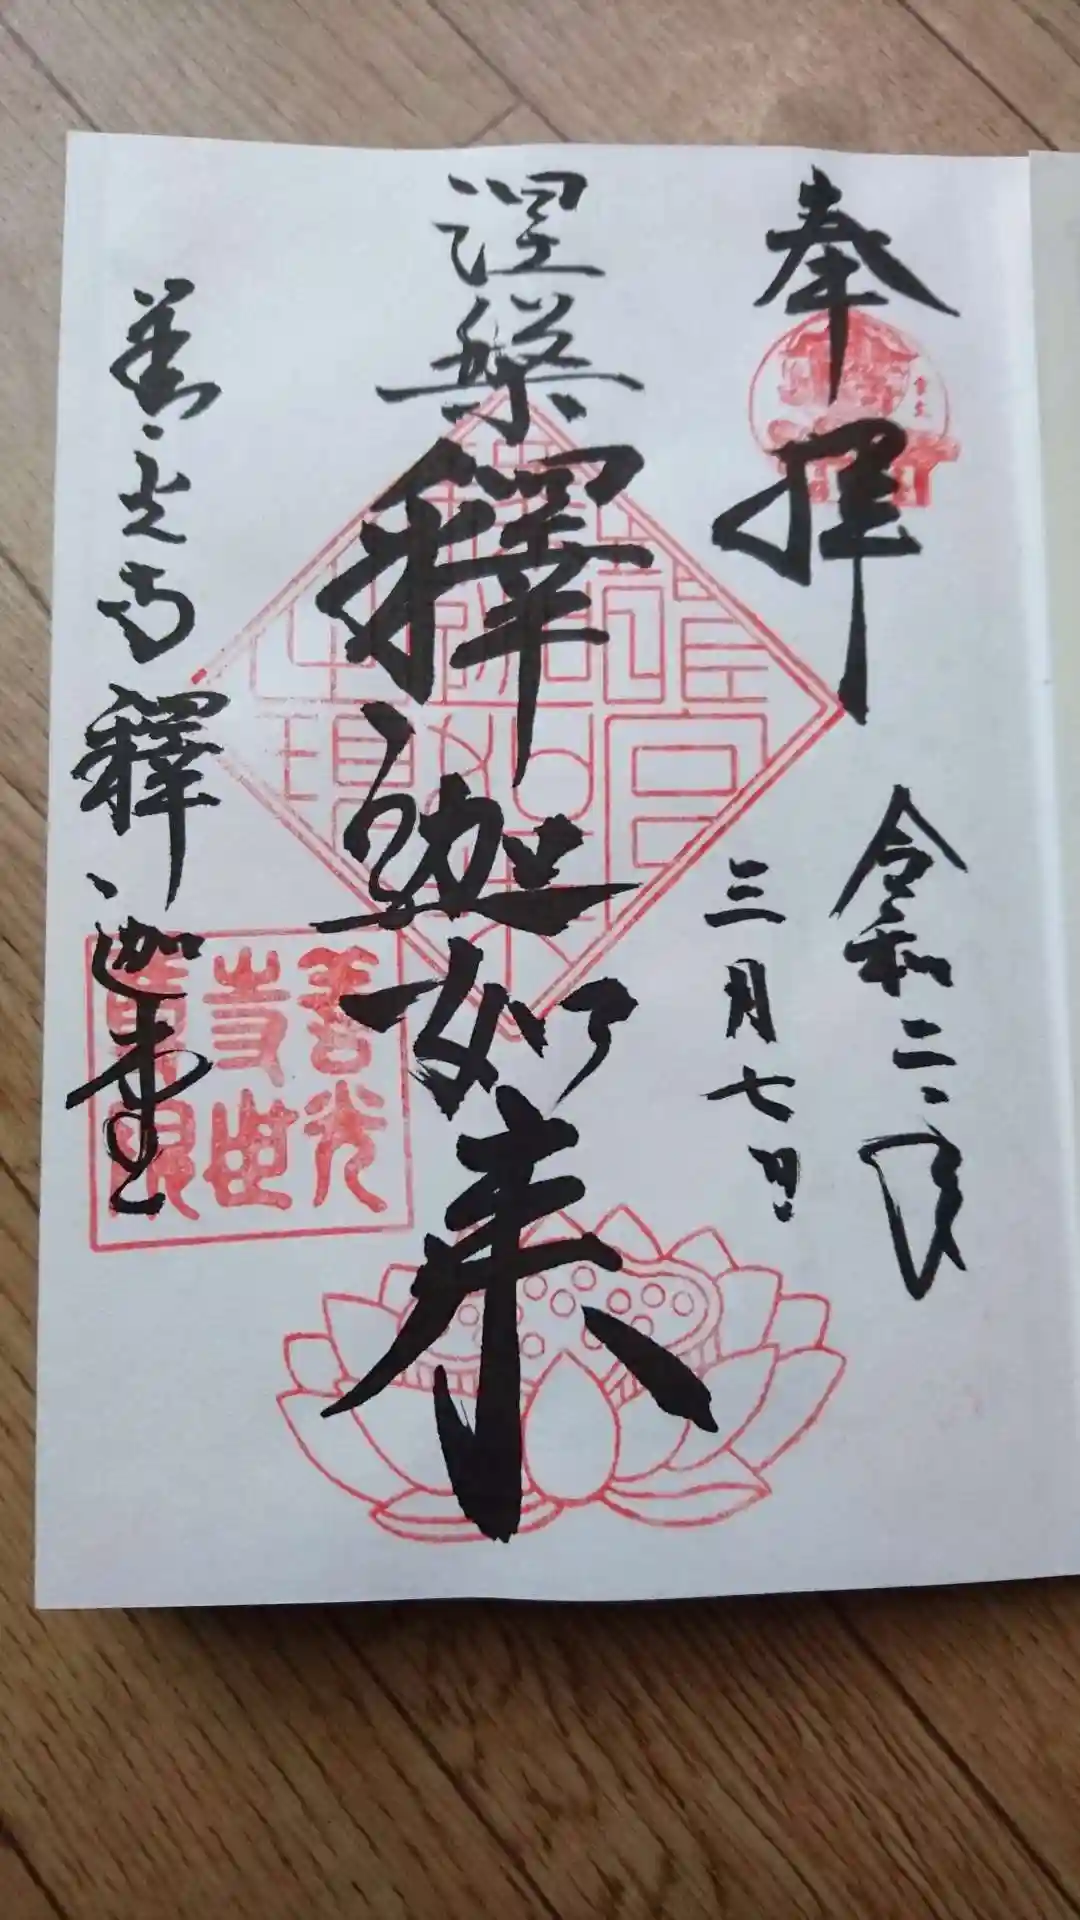 奉拝
令和二年
三月七日
涅槃
釋迦如来
善光寺釋迦堂
善光
寺世